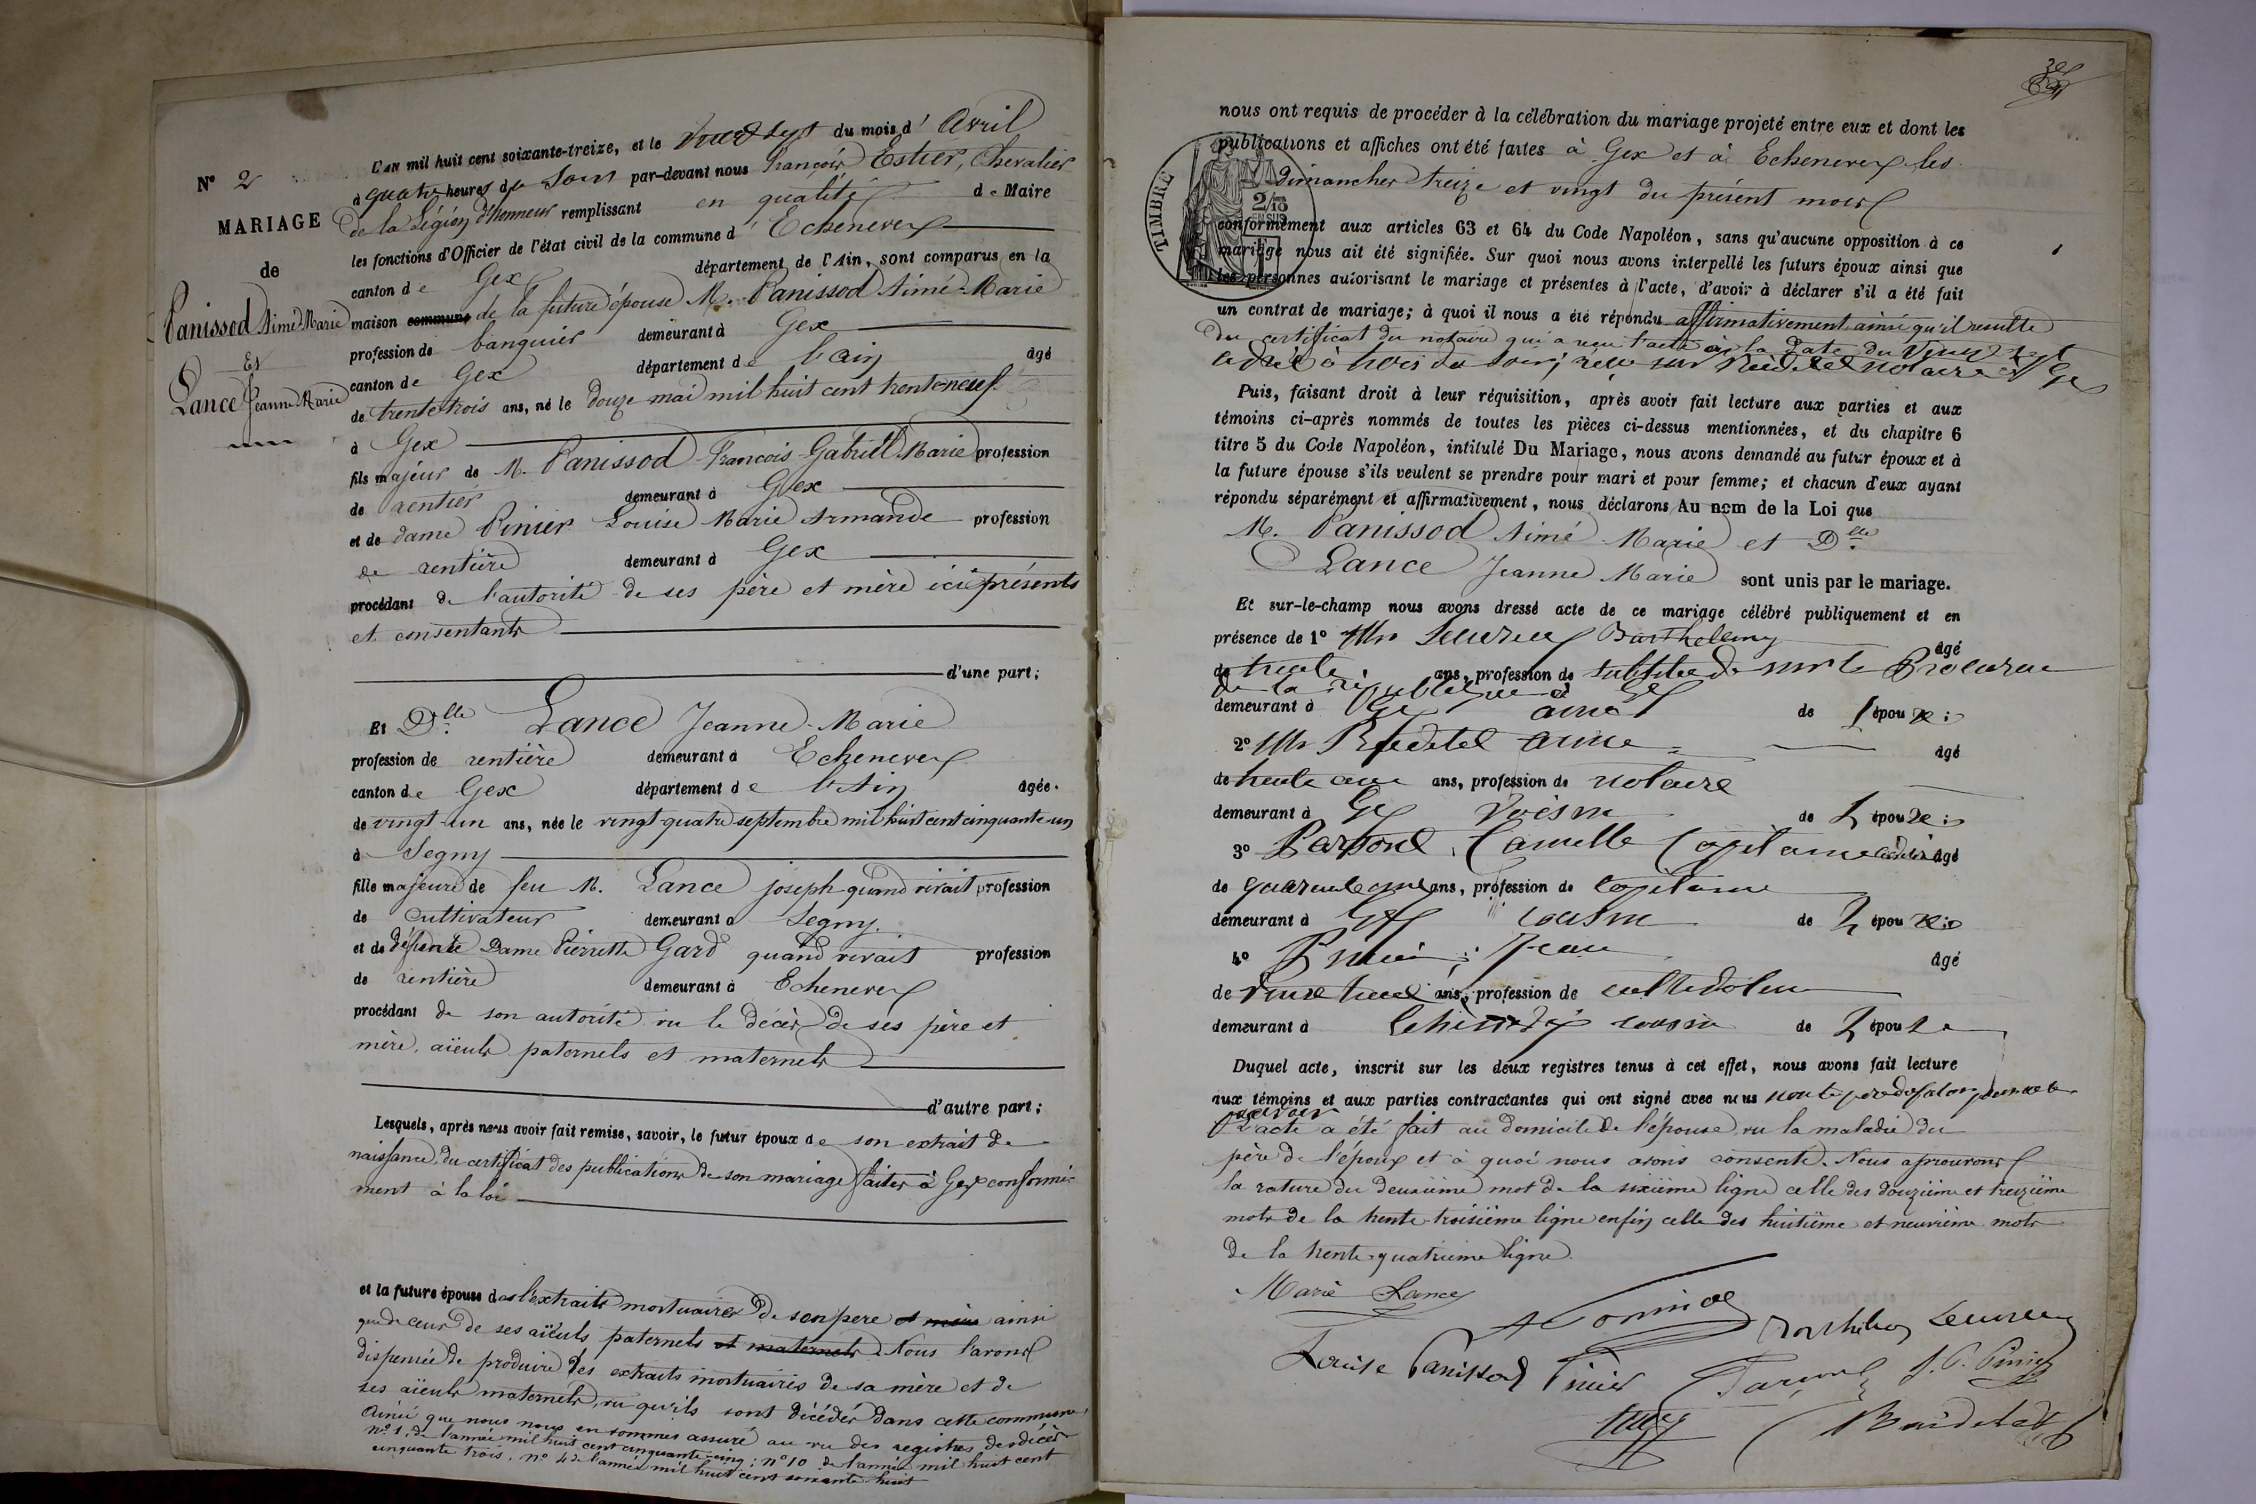 N° 2
MARIAGE
de
Panissod Aimé Marie
Et
Lance Jeanne Marie
L'an mil huit cent soixante-treize, et le vingt sept du mois d'Avril
à quatre heures du soir par-devant nous François Estier, Chevalier
de la Légion d'honneur remplissant en qualité de Maire
les fonctions d'Officier de l'état civil de la commune d'Echenevex
canton de Gex département de l'Ain, sont comparus en la
maison commune de la future épouse M. Panissod Aimé-Marie
profession de banquier demeurant à Gex
canton de Gex département de l'ain âgé
de trente-trois ans, né le douze mai mil huit cent trente-neuf
à Gex
fils majeur de M. Panissod François-Gabriel-Marie profession
de rentier demeurant à Gex
et de dame Pinier Louise Marie Armande profession
de rentière demeurant à Gex
procédant de l'autorité de ses père et mère ici présents
et consentants
d'une part;
Et Dlle. Lance Jeanne-Marie
profession de rentière demeurant à Echenevex
canton de Gex département de l'Ain âgée
de vingt-un ans, née le vingt-quatre septembre mil huit cent cinquante-un
à Segny
fille majeure de feu M. Lance joseph quand vivait profession
de cultivateur demeurant à Segny
et de défunte Dame Pierrette Gard quand vivait profession
de rentière demeurant à Echenevex
procédant de son autorité vu le décès de ses père et
mère, aïeuls paternels et maternels
d'autre part;
Lesquels, après nous avoir fait remise, savoir, le futur époux de son extrait de
naissance, du certificat des publications de son mariage faites à Gex conformé-
ment à la loi
et la future épouse des l'extraits mortuaires de son pere et mère ainsi
que de ceux de ses aïeuls paternels et maternels. Nous l'avons
dispensée de produire des extraits mortuaires de sa mère et de
ses aïeuls maternels, vu qu'ils sont décédés dans cette commune,
Ainsi que nous nous en sommes assuré au vu des registres des décès
n° 1, de l'année mil huit cent cinquante-cinq; n° 10 de l'année mil huit cent
cinquante trois, n° 4 de l'année mil huit cent soixante-huit
nous ont requis de procéder à la célébration du mariage projeté entre eux et dont les
publications et affiches ont été faites à Gex et à Echenevex les
dimanches treize et vingt du présent mois
TIMBRE
2/10
EN SUS
conformément aux articles 63 et 64 du Code Napoléon, sans qu'aucune opposition à ce
mariage nous ait été signifiée. Sur quoi nous avons interpellé les futurs époux ainsi que
les personnes autorisant le mariage et présentes à l'acte, d'avoir à déclarer s'il a été fait
un contrat de mariage; à quoi il nous a été répondu affirmativement ainsi qu'il resulte
du certificat du notaire qui a reçu l'acte à la date du vingt sept
avril à trois du soir, notaire à Gex
Puis, faisant droit à leur réquisition, après avoir fait lecture aux parties et aux
témoins ci-après nommés de toutes les pièces ci-dessus mentionnées, et du chapitre 6
titre 5 du Code Napoléon, intitulé Du Mariage, nous avons demandé au futur époux et à
la future épouse s'ils veulent se prendre pour mari et pour femme; et chacun d'eux ayant
répondu séparément et affirmativement, nous déclarons Au nom de la Loi que
M. Panissod Aimé Marie et Dlle.
Lance Jeanne Marie sont unis par le mariage.
Et sur-le-champ nous avons dressé acte de ce mariage célébré publiquement et en
présence de 1° Mr Barthelemy âgé
de trente ans, profession de substitut de mr le Procureur
de la république à Gex
demeurant à Gex ami de l'époux;
2° Mr âgé
de trente ans, profession de notaire
demeurant à Gex voisin de l'époux;
3° Camille Capitaine âgé
de quarante ans, profession de Capitaine
demeurant à Gex cousin de l'époux;
4° Jean âgé
de ans, profession de cultivateur
demeurant à cousin de l'époux
Duquel acte, inscrit sur les deux registres tenus à cet effet, nous avons fait lecture
aux témoins et aux parties contractantes qui ont signé avec nous
L'acte a été fait au domicile de l'épouse, vu la maladie du
père de l'époux et à quoi nous avons consenti. Nous aprouvons
la rature du deuxième mot de la sixième ligne celle des douzième et treizième
mots de la trente-troisième ligne enfin celle des huitième et neuvième mots
de la trente-quatrième ligne.
Marie Lance
Louise Panissod Pinier